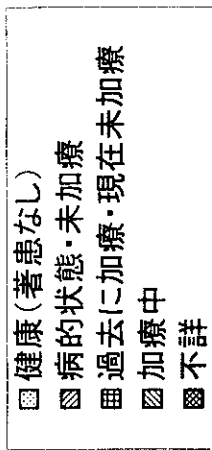 健康(著患なし)
病的状態・未加療
過去に加療・現在未加療
加療中
不詳